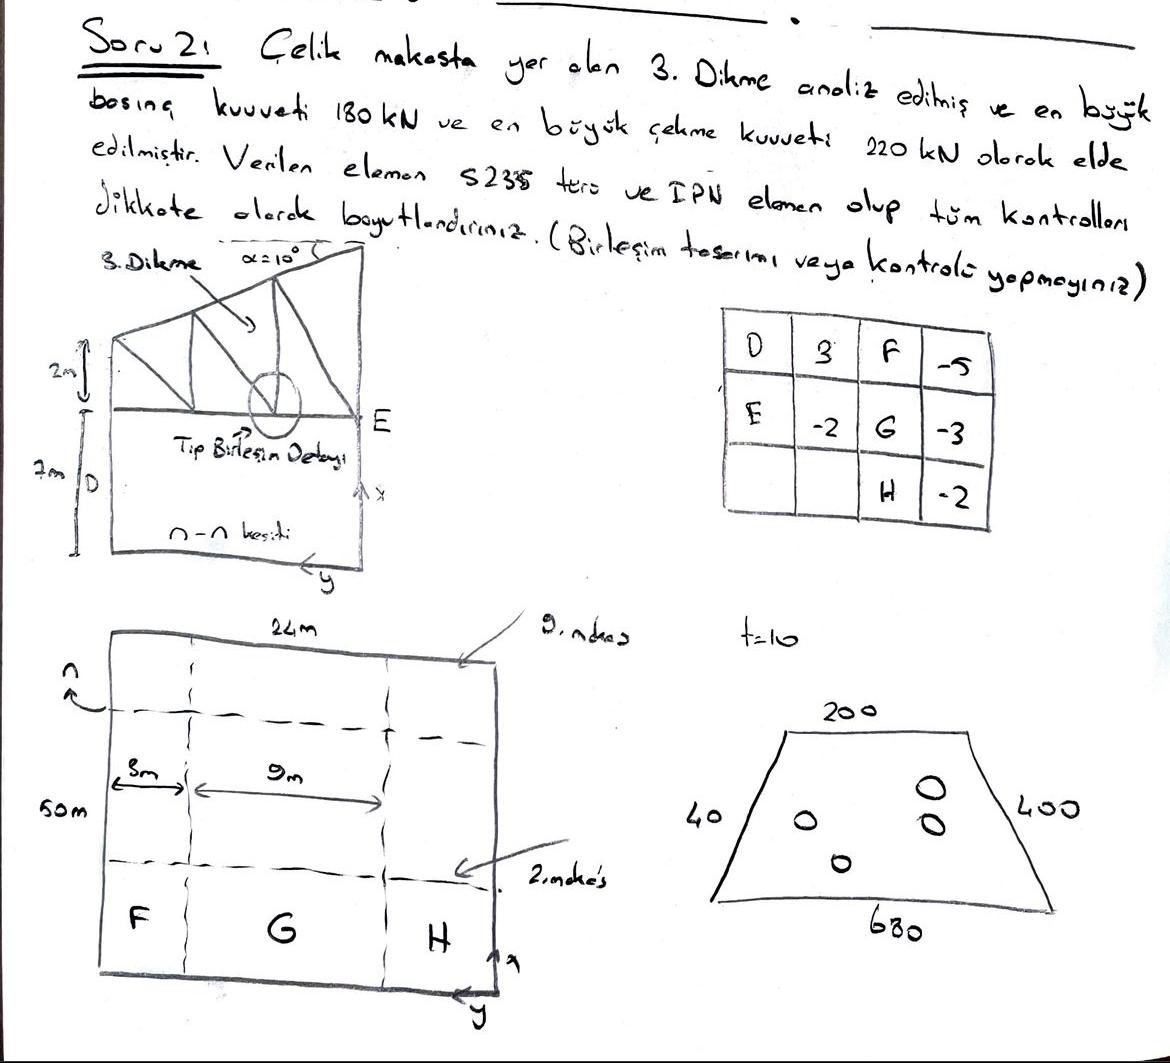 Soru 2: Çelik makasta yer alan 3. Dikme analiz edilmiş ve en büyük
basınç kuvveti 180 kN ve en büyük çekme kuvveti 220 kN olarak elde
edilmiştir. Verilen eleman S235 türü ve IPN eleman olup tüm kontrolleri
dikkate alarak boyutlandırınız. (Birleşim tasarımı veya kontrolü yapmayınız)
3. Dikme
α=10°
2m
E
Tip Birleşim Detayı
7m
D
x
n-n kesiti
y
D 3 F -5
E -2 G -3
H -2
24m
9. makas
t=10
n
200
3m
9m
50m
40
400
2. makas
F
G
H
680
y